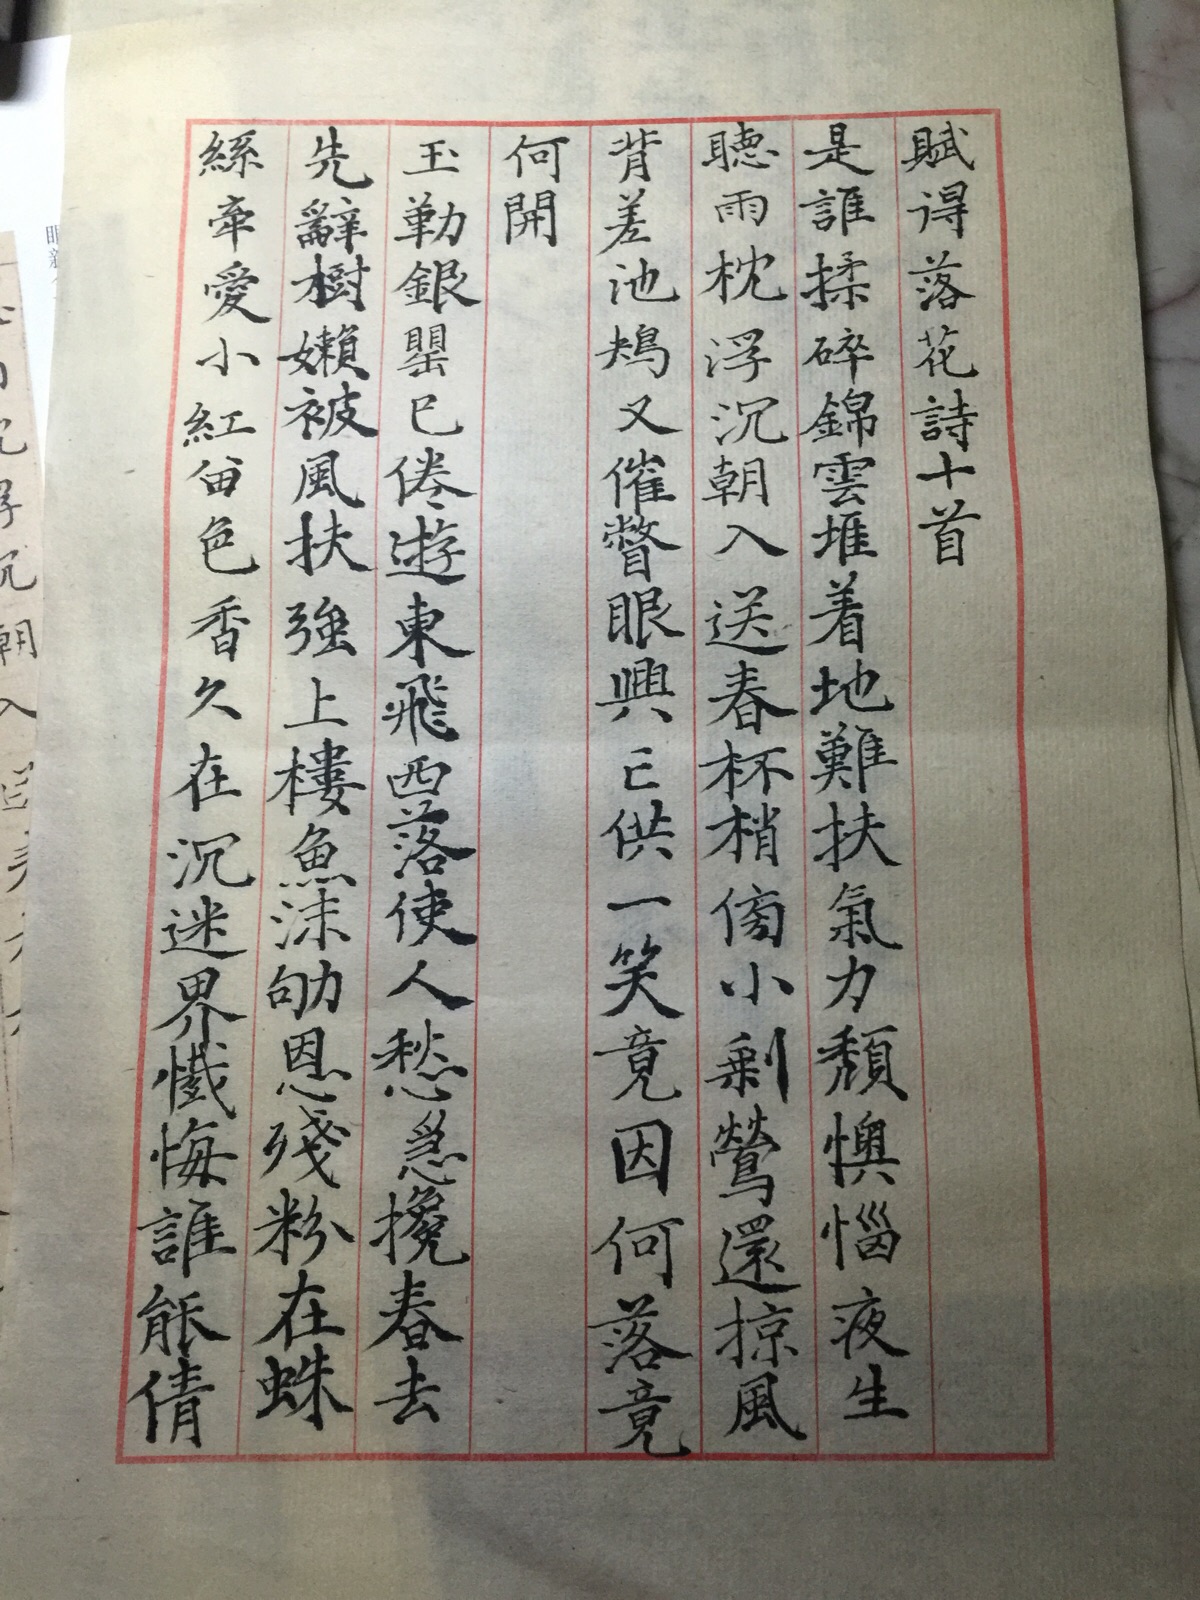 賦得落花詩十首
是誰揉碎錦雲堆着地難扶氣力頹懊惱夜生
聽雨枕浮沉朝入送春杯梢傍小剩鶯還掠風
背差池鴂又催瞥眼興亡供一笑竟因何落竟
何開
玉勒銀罌已倦遊東飛西落使人愁急攙春去
先辭樹嬾被風扶強上樓魚沫劬恩殘粉在蛛
絲牽愛小紅留色香久在沉迷界懺悔誰能倩